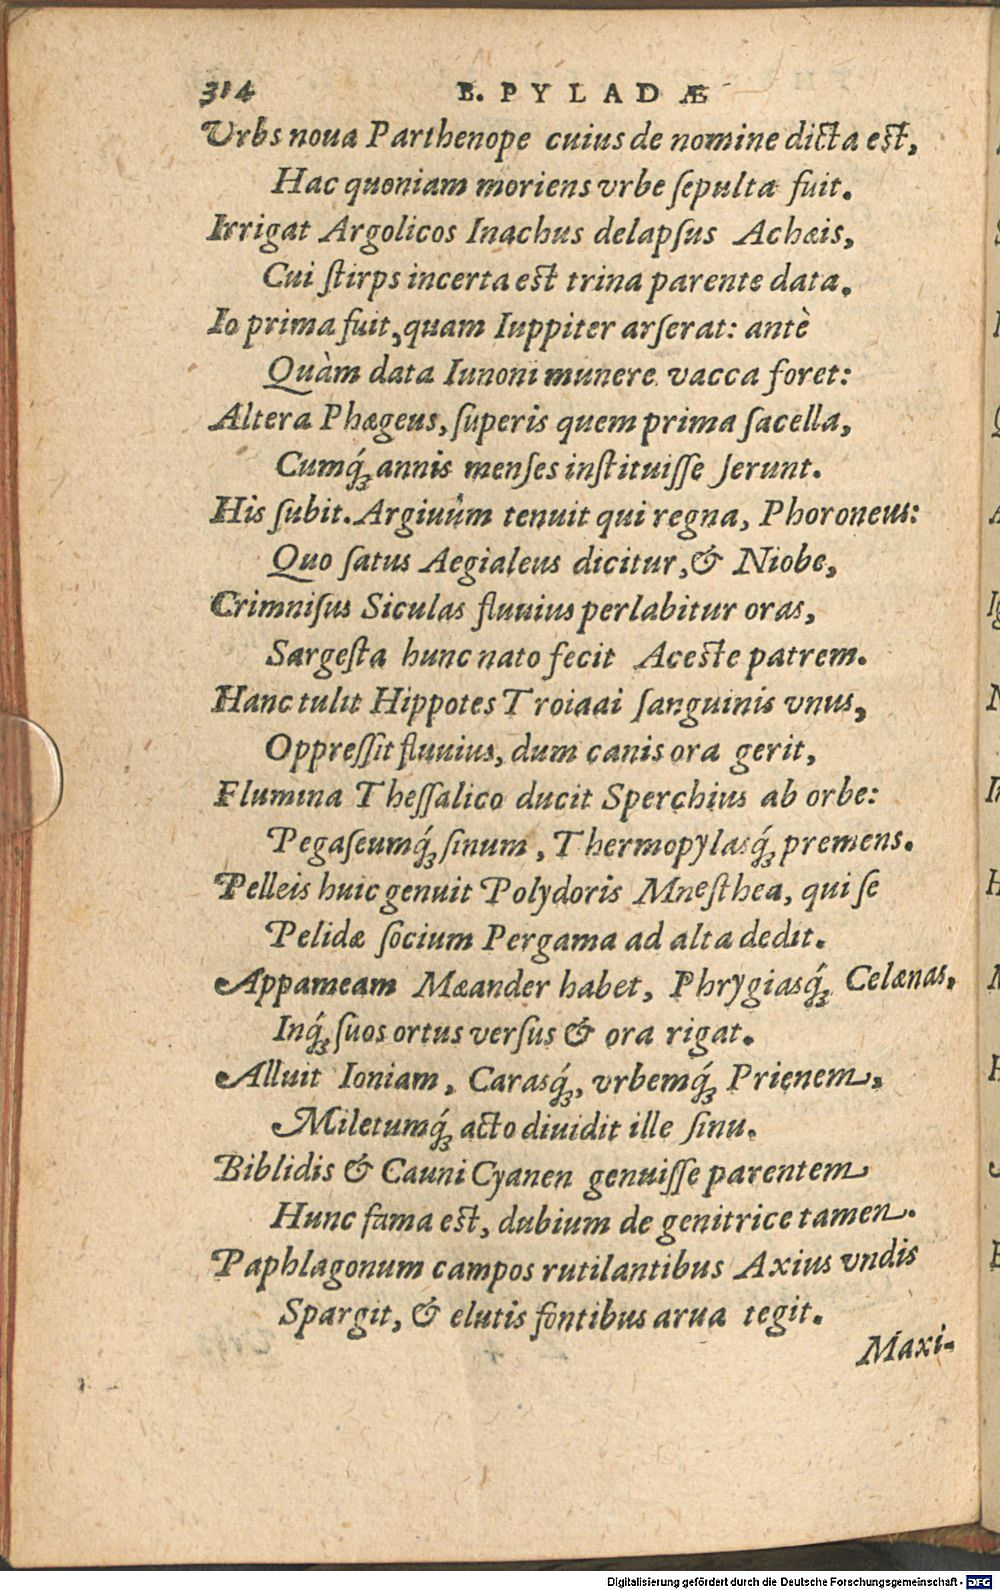 314 B. PYLADÆ
Vrbs noua Parthenope cuius de nomine dicta est,
Hac quoniam moriens vrbe ſepulta fuit.
Irrigat Argolicos Inachus delapſus Achæis,
Cui ſtirps incerta est trina parente data.
Io prima fuit, quam Iuppiter arſerat: antè
Quàm data Iunoni munere vacca foret:
Altera Phægeus, ſuperis quem prima ſacella,
Cumq́ꝫ annis menſes inſtituiſſe ferunt.
His ſubit. Argiuûm tenuit qui regna, Phoroneus:
Quo ſatus Aegialeus dicitur, & Niobe,
Crimniſus Siculas fluuius perlabitur oras,
Sargeſta hunc nato fecit Aceste patrem.
Hanc tulit Hippotes Troiaai ſanguinis vnus,
Oppreſſit fluuius, dum canis ora gerit,
Flumina Theſſalico ducit Sperchius ab orbe:
Pegaſeumq́ꝫ ſinum, Thermopylasq́ꝫ premens.
Pelleis huic genuit Polydoris Mneſthea, qui ſe
Pelidæ ſocium Pergama ad alta dedit.
Appameam Mæander habet, Phrygiasq́ꝫ Celænas,
Inq́ꝫ ſuos ortus verſus & ora rigat.
Alluit Ioniam, Carasq́ꝫ, vrbemq́ꝫ Prienem,
Miletumq́ꝫ acto diuidit ille ſinu.
Biblidis & Cauni Cyanen genuiſſe parentem
Hunc fama est, dubium de genitrice tamen.
Paphlagonum campos rutilantibus Axius vndis
Spargit, & elutis fontibus arua tegit.
Maxi-
Digitalisierung gefördert durch die Deutsche Forschungsgemeinschaft - DFG